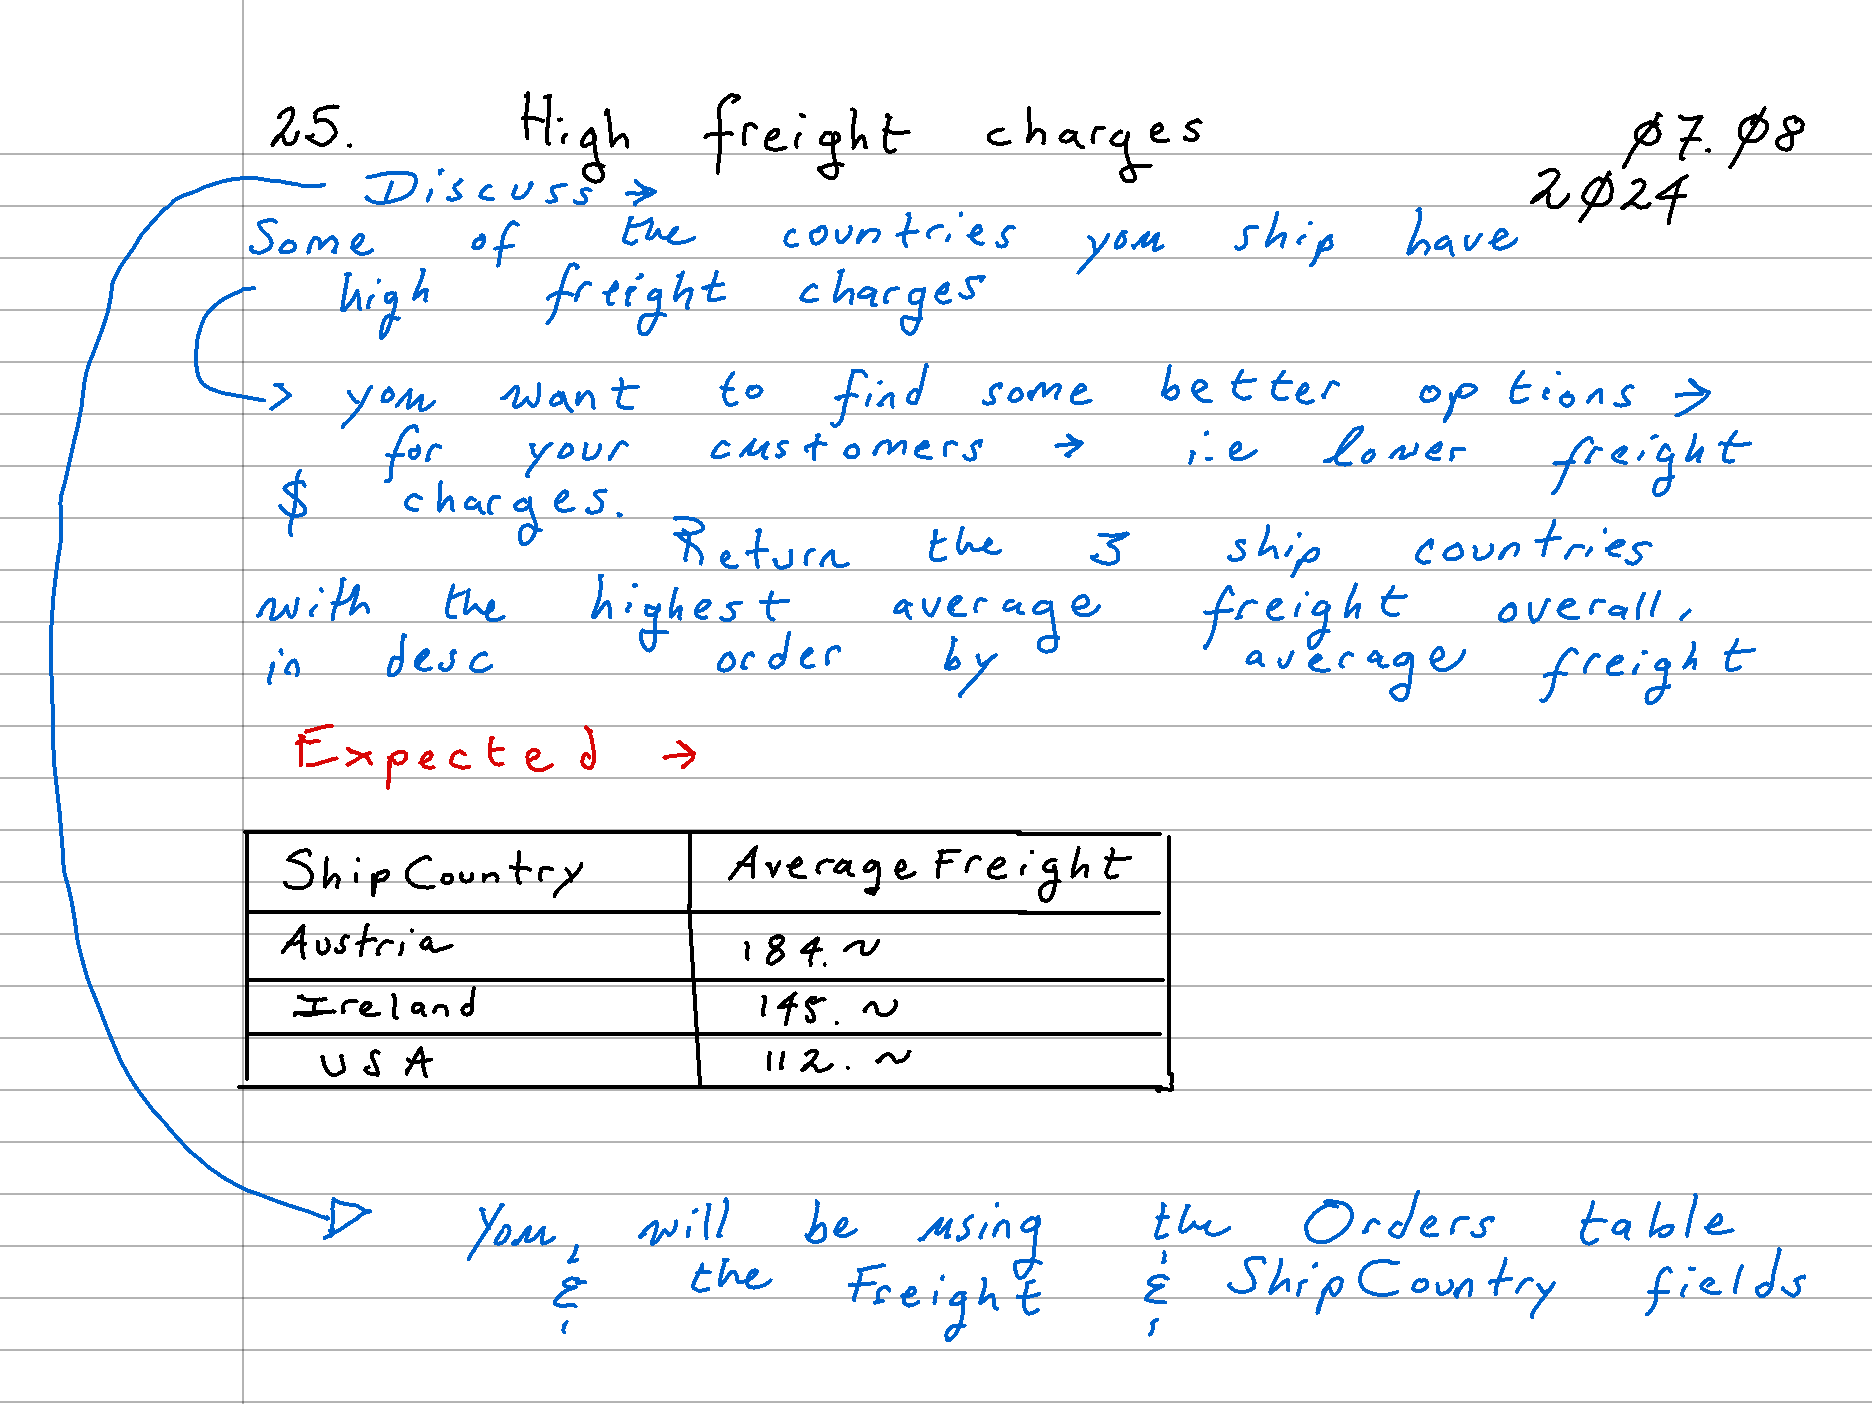 25. High freight charges 07.08
2024
Discuss →
Some of the countries you ship have
high freight charges
→ you want to find some better options →
for your customers → i.e lower freight
$ charges.
Return the 3 ship countries
with the highest average freight overall,
in desc order by average freight
Expected →
ShipCountry AverageFreight
Austria 184.~
Ireland 145.~
USA 112.~
You will be using the Orders table
& the Freight & ShipCountry fields